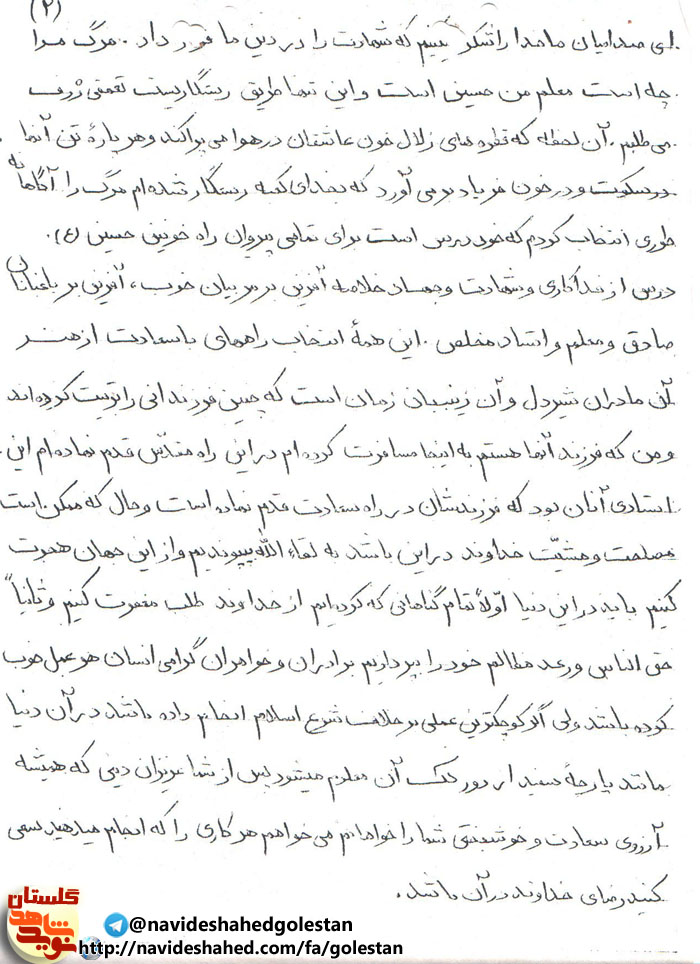 (۲)
ای خدائیان ما خدا را شکر کنیم که شهادت را در دین ما قرار داد. مرگ مرا
چه است معلم من حسین است و این تنها طریق رستگاریست نعمتی ژرف
می طلبم. آن لحظه که قطره های زلال خون عاشقان در هوا می پراکند و هر پارهٔ تن آنها
در سکوت و در خون فریاد بر می آورد که بخدای کعبه رستگار شده ام مرگ را آگاهانه
طوری انتخاب کردم که خود درس است برای تمامی پیروان راه خونین حسین (ع).
درس از فداکاری و شهادت و جهاد خلاصه آفرین بر مربیان خوب، آفرین بر باغبانان
صادق و معلم و استاد مخلص. این همهٔ انتخاب راههای با سعادت از هنر
آن مادران شیردل و آن زینبیان زمان است که چنین فرزندانی را تربیت کرده اند
و من که فرزند آنها هستم به اینجا مسافرت کرده ام در این راه مقدّس قدم نماده ام این
استادی آنان بود که فرزندشان در راه سعادت قدم نماده است و حال که ممکن است
مصلحت و مشیّت خداوند در این باشد به لقاء الله بپیوندیم و از این جهان هجرت
کنیم باید در این دنیا اوّلاً تمام گناهانی که کرده ایم از خداوند طلب مغفرت کنیم و ثانیاً
حق الناس و رد مظالم خود را بپردازیم برادران و خواهران گرامی انسان هر عمل خوب
کرده باشد ولی اگر کوچکترین عملی بر خلاف شرع اسلام انجام داده باشد در آن دنیا
مانند پارچهٔ سفید از دور لک آن معلوم میشود پس از شما عزیزان دینی که همیشه
آرزوی سعادت و خوشبختی شما را خواهانم می خواهم هر کاری را که انجام میدهید سعی
کنید رضای خداوند در آن باشد.
گلستان
نوید شاهد
@navideshahedgolestan
http://navideshahed.com/fa/golestan